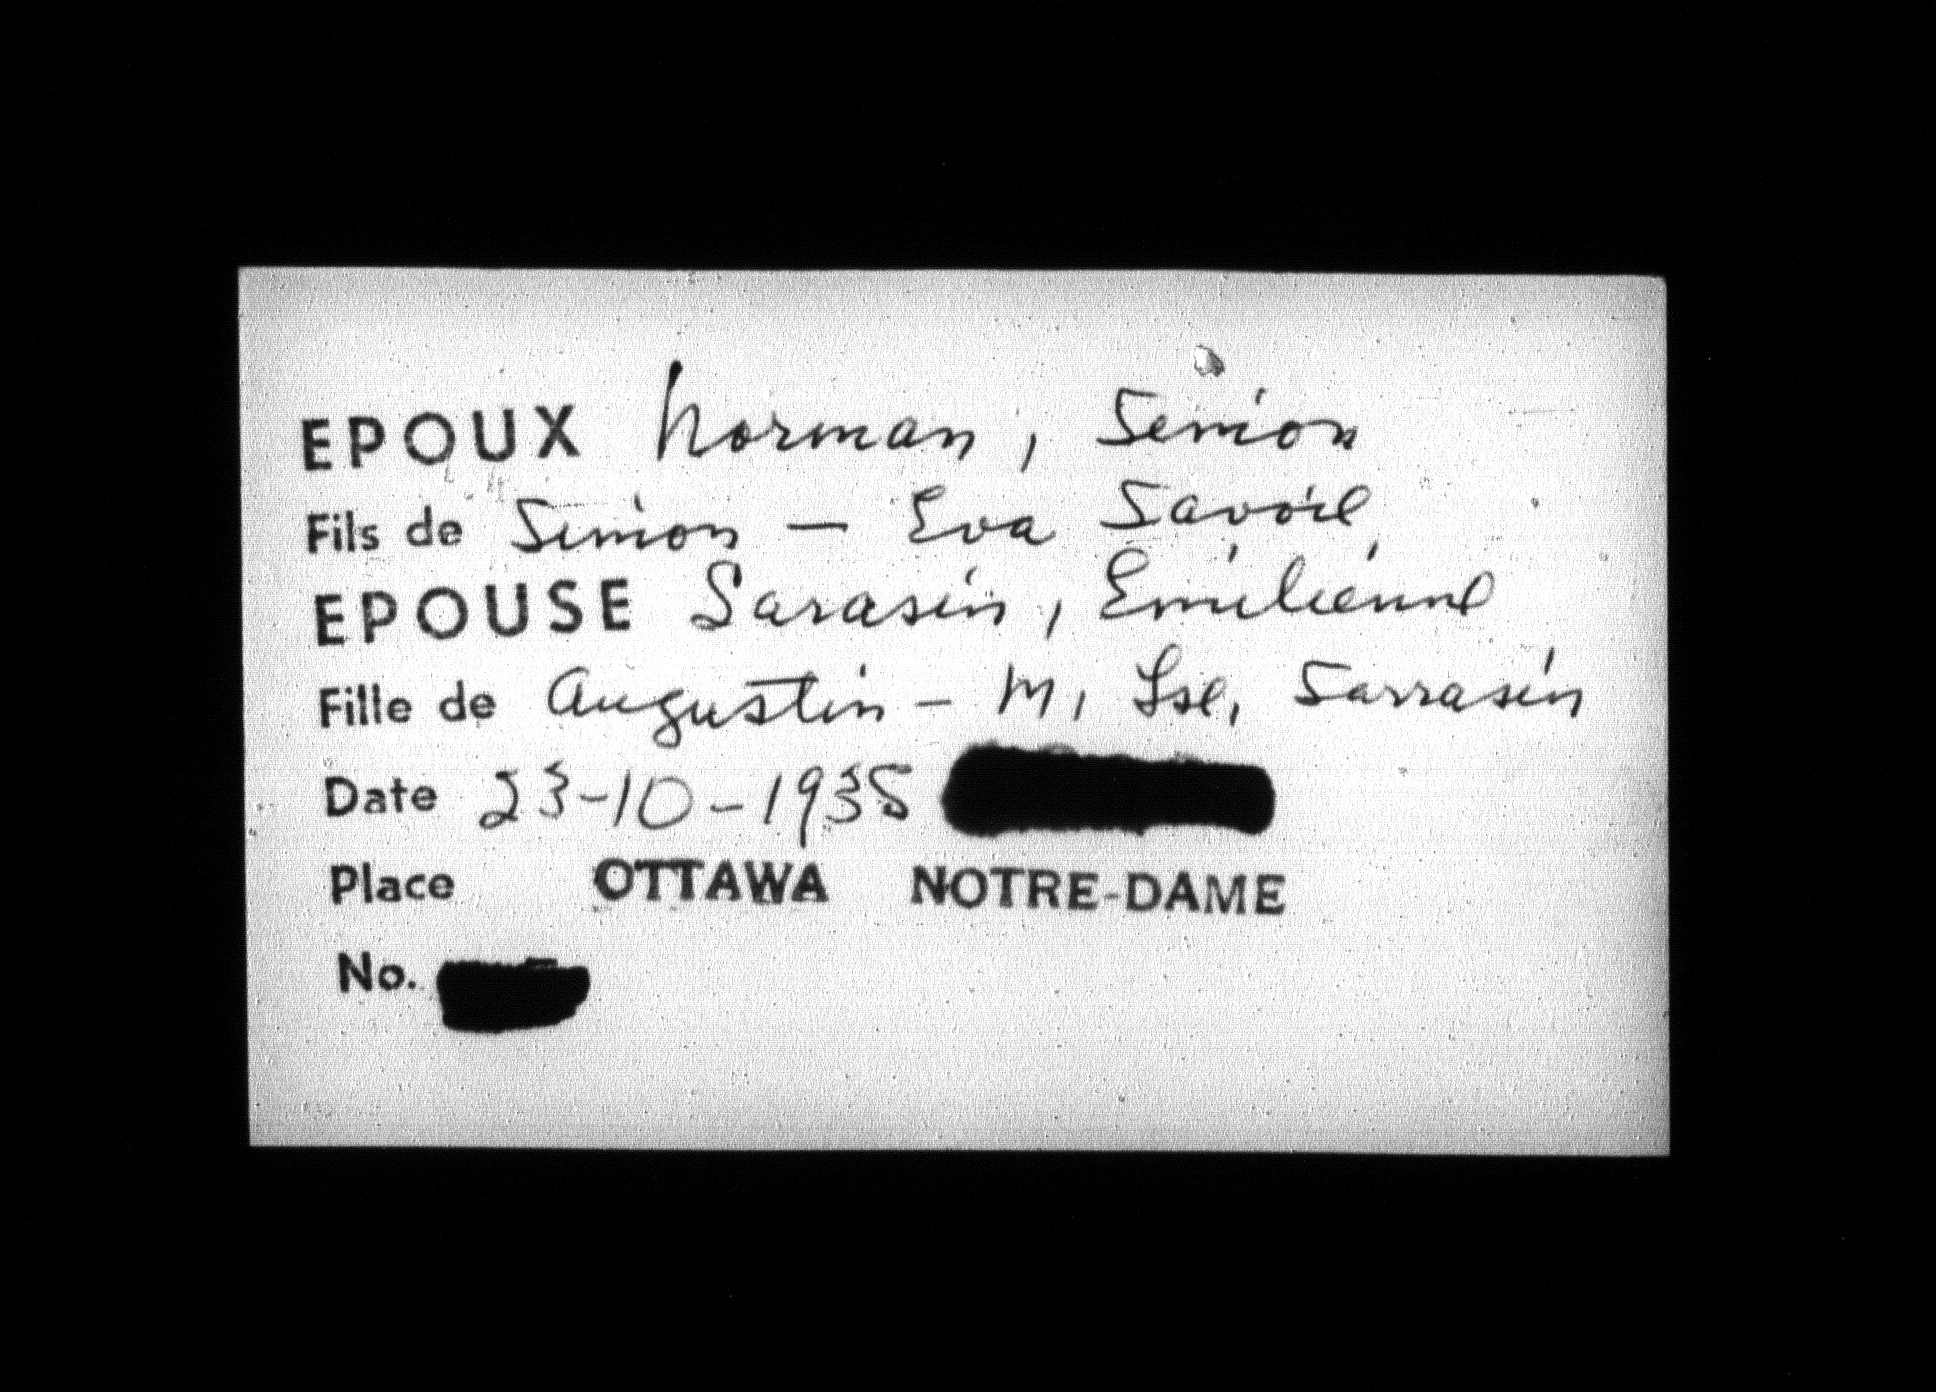 EPOUX Norman, Simion
Fils de Simion - Eva Savoie
EPOUSE Sarasin, Emilienne
Fille de Augustin - M, Lse, Sarrasin
Date 23-10-1938
Place OTTAWA NOTRE-DAME
No.